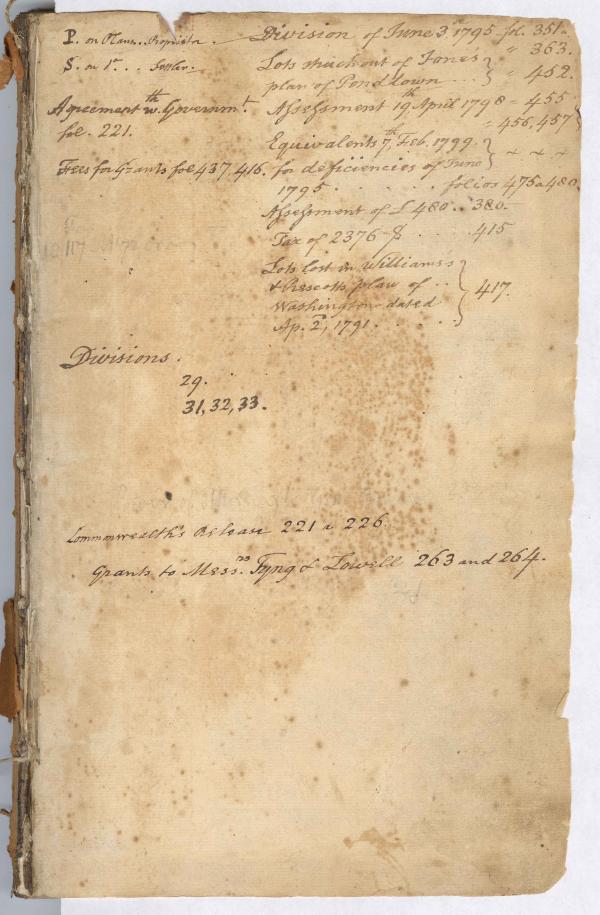 P. on Plans.. Proprietor.
S. on Do. .. Settler.
Agreement wth. Governmt.
fol. 221.
Fees for Grants fol 437, 416.
Division of June 3d 1795 fol. 351.
" 363.
Lots struck out of Jones's
plan of Pondtown ... } " 452.
Assessment 19th April 1798 = 455
" 456, 457 }
Equivalents 7th Feb. 1799.
for deficiencies of June
1795 . . . . . folios 475 a 480.
Assessment of £480.. 380.
Tax of 2376 $ . . . . 415
Lots lost in Williams's
& Prescotts plan of ...
Washington dated
Ap. 2, 1791. . . . } 417.
117
Divisions.
29.
31, 32, 33.
Commonwealth's Release 221 a 226.
Grants to Messrs. Tyng & Lowell 263 and 264.